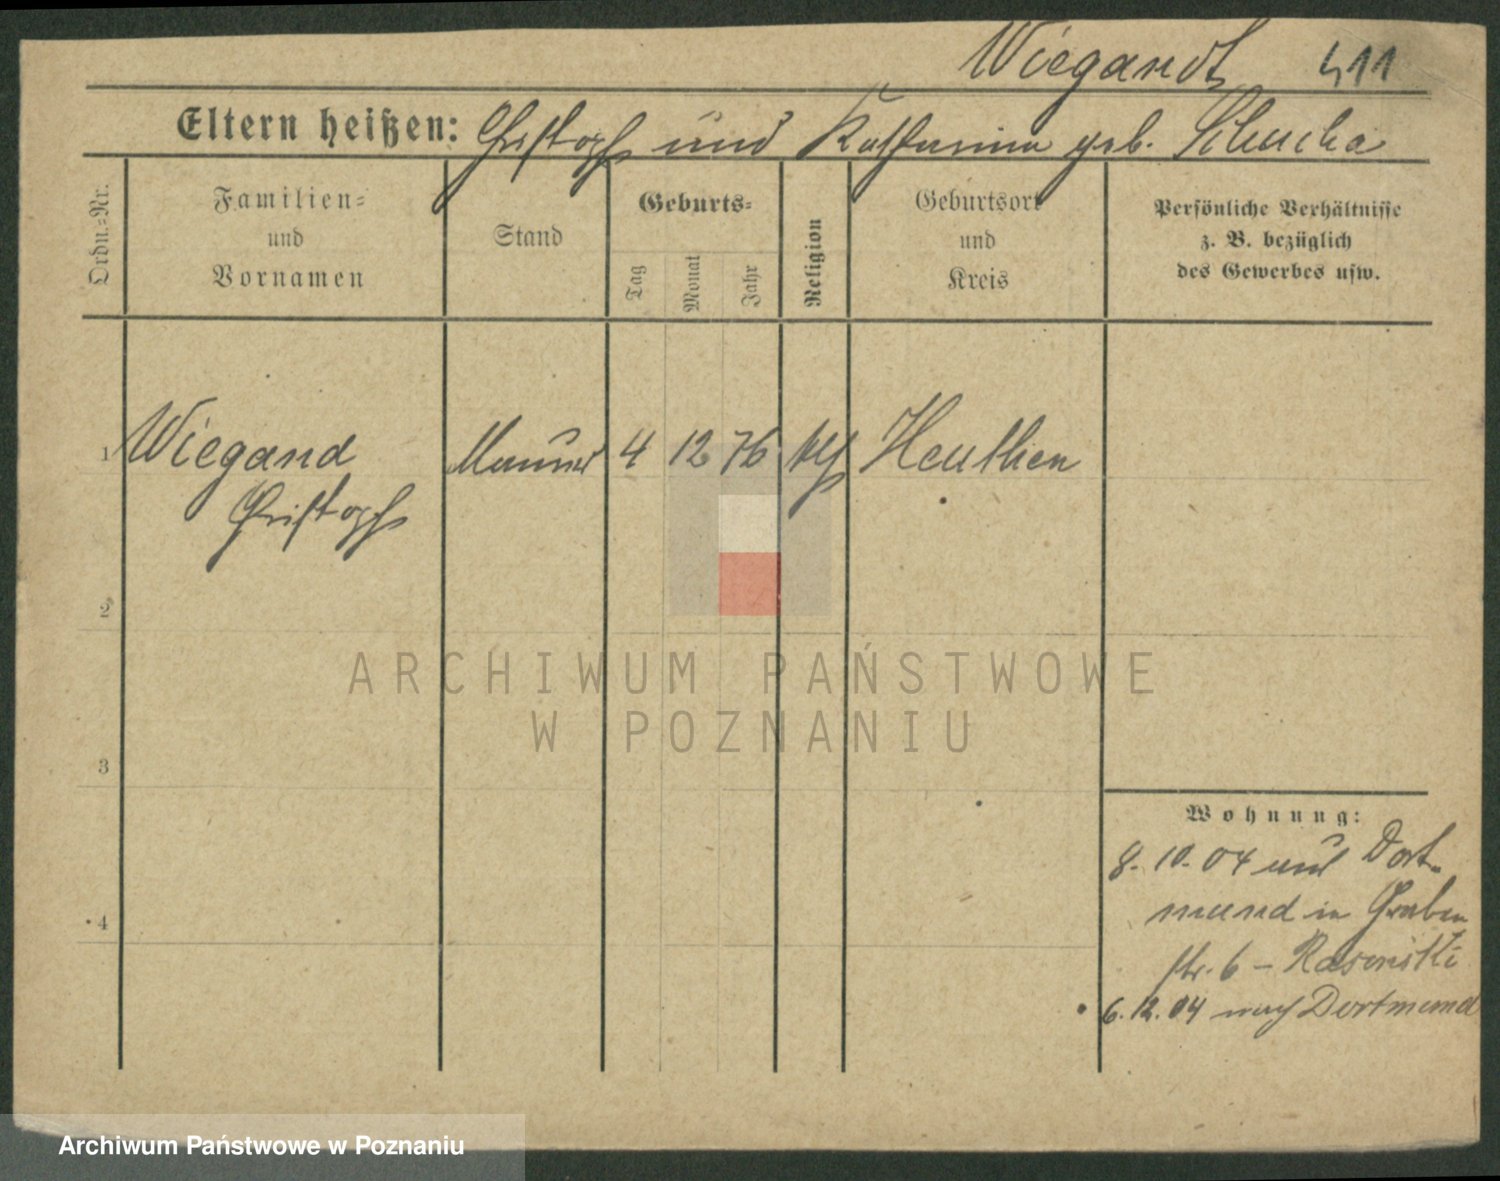 Wiegandt 411
Eltern heißen: Christoph und Katharina geb.
Ordn.=Nr.
Familien=
und
Vornamen
Stand
Geburts=
Tag
Monat
Jahr
Religion
Geburtsort
und
Kreis
Persönliche Verhältnisse
z. B. bezüglich
des Gewerbes usw.
1 Wiegand Maurer 4 12 76 kth Heuthen
Christoph
2
3
4
Wohnung:
8. 10. 04 aus Dort-
mund in Graben
str. 6 - Rasinski
6. 12. 04 nach Dortmund
ARCHIWUM PAŃSTWOWE
W POZNANIU
Archiwum Państwowe w Poznaniu